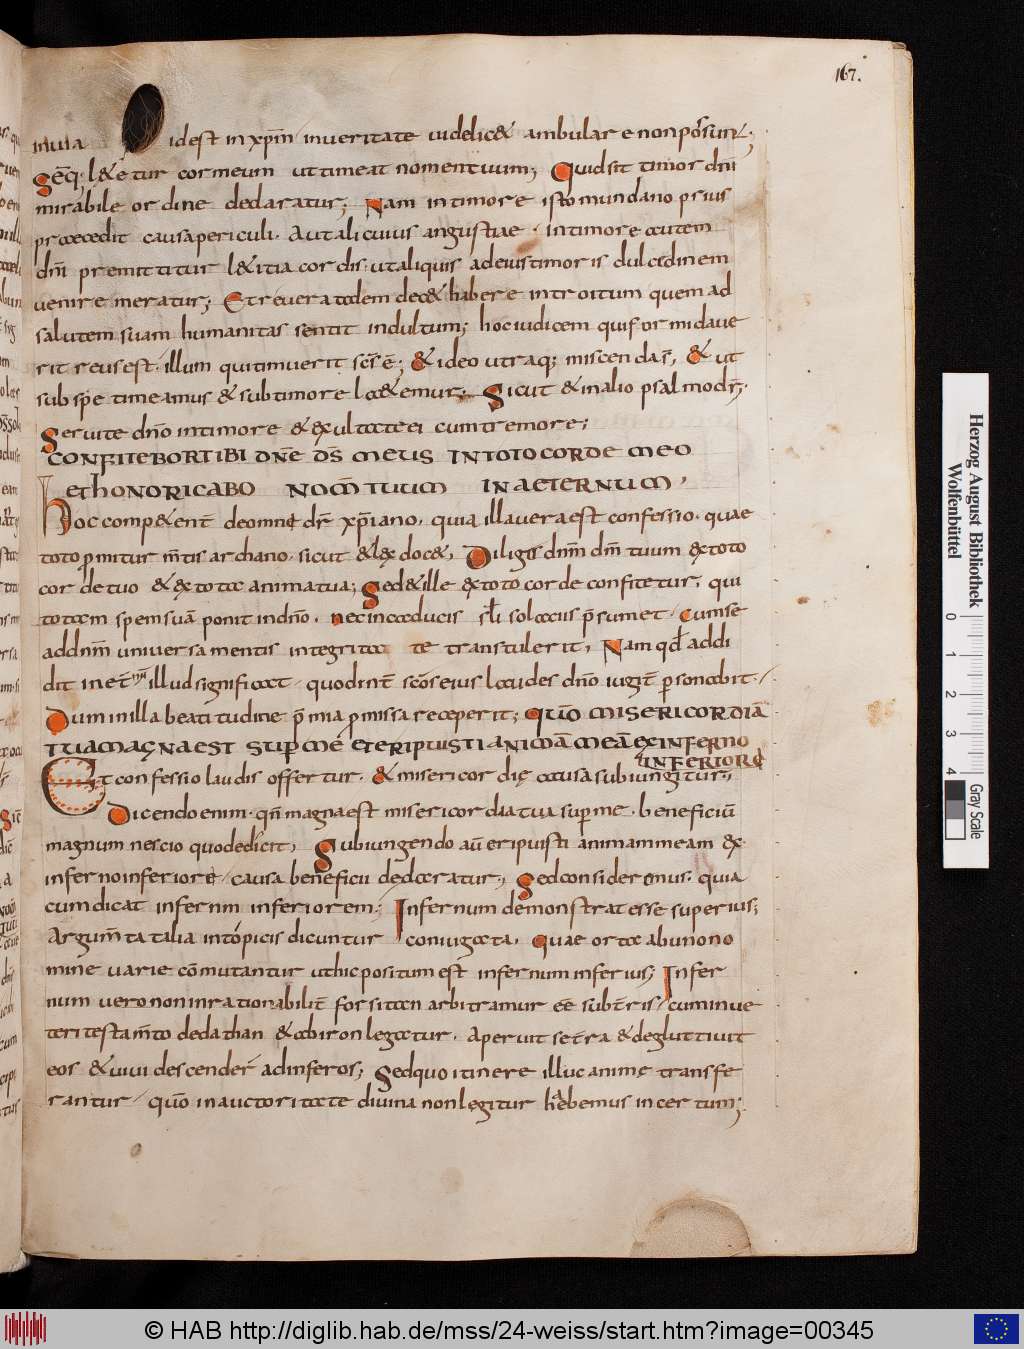 167.
in uia idest in xp̄m in ueritate uidelic& ambulare non possunt;
Seq̄; l&etur cor meum ut timeat nomen tuum; Quid sit timor dn̄i
mirabile ordine declaratur; Nam in timore isto mundano prius
praecedit causa periculi. Aut alicuius angustiae. in timore autem
dn̄i premittitur l&itia cordis. ut aliquis ad eius timoris dulcedinem
uenire meratur; Et reuera talem dec& habere introitum quem ad
salutem suam humanitas sentit indultum; hoc iudicem qui formidaue
rit reus est. illum qui timuerit sc̄s ē; & ideo utraq; miscenda s̄, & ut
sub spe timeamus & sub timore l&emur; Sicut & in alio psalmo dr̄;
Seruite dn̄o in timore & exultate ei cum tremore;
CONFITEBOR TIBI DN̄E D̄S MEUS IN TOTO CORDE MEO
et HONORIFICABO NOM̄ TUUM IN AETERNUM.
Hoc comp&ent̄ de omni dr̄ xp̄iano. quia illa uera est confessio. quae
toto promitur m̄tis archano. sicut & lex doc&, Diligis dn̄m dm̄ tuum ex toto
corde tuo & ex tota anima tua; Sed & ille ex toto corde confitetur, qui
totam spem suā ponit in dn̄o. nec in caducis sc̄li solaciis p̄sumet. Cum se
ad dn̄m uniuersa mentis integritate transtulerit, Nam qd̄ addi
dit in et̄num illud significat. quod int̄ sc̄os eius laudes dn̄o iugit̄ personabit.
Dum in illa beatitudine p̄mia promissa receperit; QUŌ MISERICORDIĀ
TUA MAGNA EST SUPER MĒ ET ERIPUISTI ANIMĀ MEĀ EX INFERNO
INFERIORE
Et confessio laudis offertur. & misericordię causa subiungitur;
Dicendo enim. qm̄ magna est misericordia tua super me. beneficiū
magnum nescio quo dedicit, Subiungendo aū eripuisti animam meam ex
inferno inferiore / causa beneficii declaratur; Sed consideremus. quia
cum dicat infernm inferiorem; Infernum demonstrat esse superius;
Argum̄ta talia in topicis dicuntur coniugata. Quae orta ab uno no
mine uarie cōmutantur ut hic positum est infernum inferius; Infer
num uero non inrationabilit̄ forsitan arbitramur eē subt̄ris / cum in ue
teri testam̄to de dathan & abiron legatur. Aperuit se t̄ra & degluttiuit
eos & uiui descender̄ ad inferos; Sed quo itinere illuc animę transfe
rantur / quō in auctoritate diuina non legitur habemus incertum;
Herzog August Bibliothek
Wolfenbüttel
0 1 2 3 4
Gray Scale
© HAB http://diglib.hab.de/mss/24-weiss/start.htm?image=00345